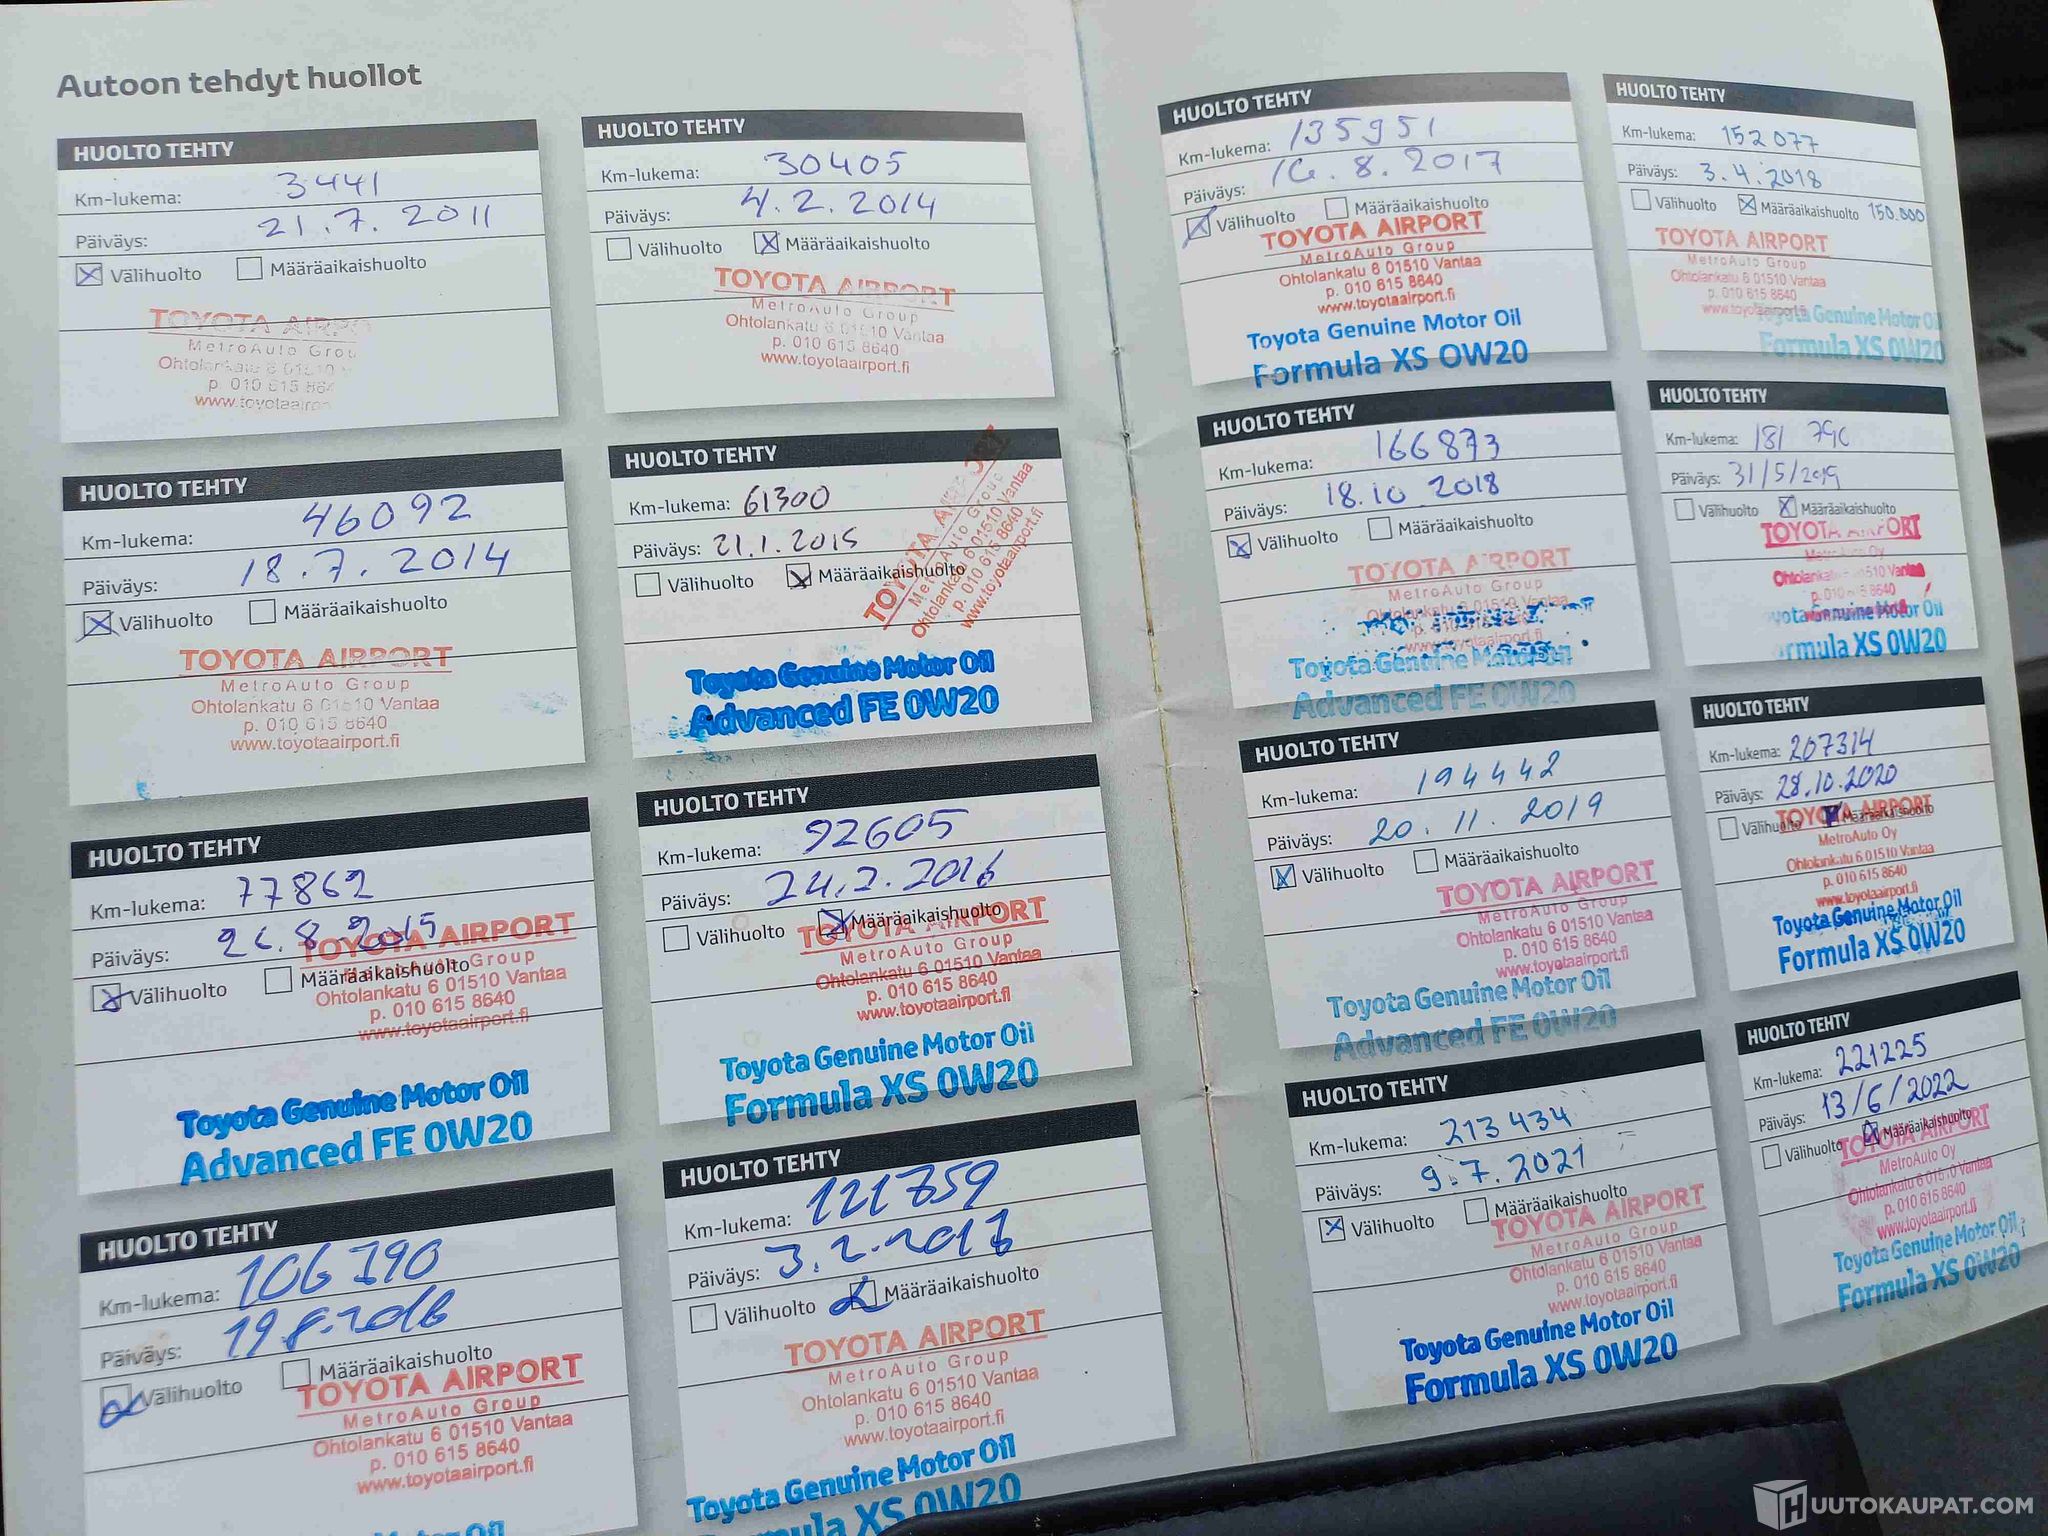 Autoon tehdyt huollot
HUOLTO TEHTY
Km-lukema: 3441
Päiväys: 21.7.2011
Välihuolto Määräaikaishuolto
TOYOTA AIRPO
MetroAuto Grou
Ohtolankatu 6 01510 V
p. 010 615 864
www.toyotaairpor
HUOLTO TEHTY
Km-lukema: 30405
Päiväys: 4.2.2014
Välihuolto Määräaikaishuolto
TOYOTA AIRPORT
MetroAuto Group
Ohtolankatu 6 01510 Vantaa
p. 010 615 8640
www.toyotaairport.fi
HUOLTO TEHTY
Km-lukema: 46092
Päiväys: 18.7.2014
Välihuolto Määräaikaishuolto
TOYOTA AIRPORT
MetroAuto Group
Ohtolankatu 6 01510 Vantaa
p. 010 615 8640
www.toyotaairport.fi
HUOLTO TEHTY
Km-lukema: 61300
Päiväys: 21.1.2015
Välihuolto Määräaikaishuolto
TOYOTA AIRPORT
MetroAuto Group
Ohtolankatu 6 01510 Vantaa
p. 010 615 8640
www.toyotaairport.fi
Toyota Genuine Motor Oil
Advanced FE 0W20
HUOLTO TEHTY
Km-lukema: 77862
Päiväys: 26.8.2015
Välihuolto Määräaikaishuolto
TOYOTA AIRPORT
MetroAuto Group
Ohtolankatu 6 01510 Vantaa
p. 010 615 8640
www.toyotaairport.fi
Toyota Genuine Motor Oil
Advanced FE 0W20
HUOLTO TEHTY
Km-lukema: 92605
Päiväys: 24.2.2016
Välihuolto Määräaikaishuolto
TOYOTA AIRPORT
MetroAuto Group
Ohtolankatu 6 01510 Vantaa
p. 010 615 8640
www.toyotaairport.fi
Toyota Genuine Motor Oil
Formula XS 0W20
HUOLTO TEHTY
Km-lukema: 106190
Päiväys: 19.8.2016
Välihuolto Määräaikaishuolto
TOYOTA AIRPORT
MetroAuto Group
Ohtolankatu 6 01510 Vantaa
p. 010 615 8640
www.toyotaairport.fi
HUOLTO TEHTY
Km-lukema: 121859
Päiväys:
Välihuolto Määräaikaishuolto
TOYOTA AIRPORT
MetroAuto Group
Ohtolankatu 6 01510 Vantaa
p. 010 615 8640
www.toyotaairport.fi
Toyota Genuine Motor Oil
Formula XS 0W20
HUOLTO TEHTY
Km-lukema: 135951
Päiväys: 16.8.2017
Välihuolto Määräaikaishuolto
TOYOTA AIRPORT
MetroAuto Group
Ohtolankatu 6 01510 Vantaa
p. 010 615 8640
www.toyotaairport.fi
Toyota Genuine Motor Oil
Formula XS 0W20
HUOLTO TEHTY
Km-lukema: 152077
Päiväys: 3.4.2018
Välihuolto Määräaikaishuolto 150.000
TOYOTA AIRPORT
MetroAuto Group
Ohtolankatu 6 01510 Vantaa
p. 010 615 8640
www.toyotaairport.fi
Toyota Genuine Motor Oil
Formula XS 0W20
HUOLTO TEHTY
Km-lukema: 166873
Päiväys: 18.10 2018
Välihuolto Määräaikaishuolto
TOYOTA AIRPORT
MetroAuto Group
Ohtolankatu 6 01510 Vantaa
p. 010 615 8640
www.toyotaairport.fi
Toyota Genuine Motor Oil
Advanced FE 0W20
HUOLTO TEHTY
Km-lukema: 181 790
Päiväys: 31/5/2019
Välihuolto Määräaikaishuolto
TOYOTA AIRPORT
MetroAuto Oy
Ohtolankatu 6 01510 Vantaa
p. 010 615 8640
yota Genuine Motor Oil
rmula XS 0W20
HUOLTO TEHTY
Km-lukema: 194442
Päiväys: 20.11.2019
Välihuolto Määräaikaishuolto
TOYOTA AIRPORT
MetroAuto Group
Ohtolankatu 6 01510 Vantaa
p. 010 615 8640
www.toyotaairport.fi
Toyota Genuine Motor Oil
Advanced FE 0W20
HUOLTO TEHTY
Km-lukema: 207314
Päiväys: 28.10.2020
Välihuolto Määräaikaishuolto
TOYOTA AIRPORT
MetroAuto Oy
Ohtolankatu 6 01510 Vantaa
p. 010 615 8640
www.toyotaairport.fi
Toyota Genuine Motor Oil
Formula XS 0W20
HUOLTO TEHTY
Km-lukema: 213434
Päiväys: 9.7.2021
Välihuolto Määräaikaishuolto
TOYOTA AIRPORT
MetroAuto Group
Ohtolankatu 6 01510 Vantaa
p. 010 615 8640
www.toyotaairport.fi
Toyota Genuine Motor Oil
Formula XS 0W20
HUOLTO TEHTY
Km-lukema: 221225
Päiväys: 13/6/2022
Välihuolto Määräaikaishuolto
TOYOTA AIRPORT
MetroAuto Oy
Ohtolankatu 6 01510 Vantaa
p. 010 615 8640
www.toyotaairport.fi
Toyota Genuine Motor Oil
Formula XS 0W20
HUUTOKAUPAT.COM